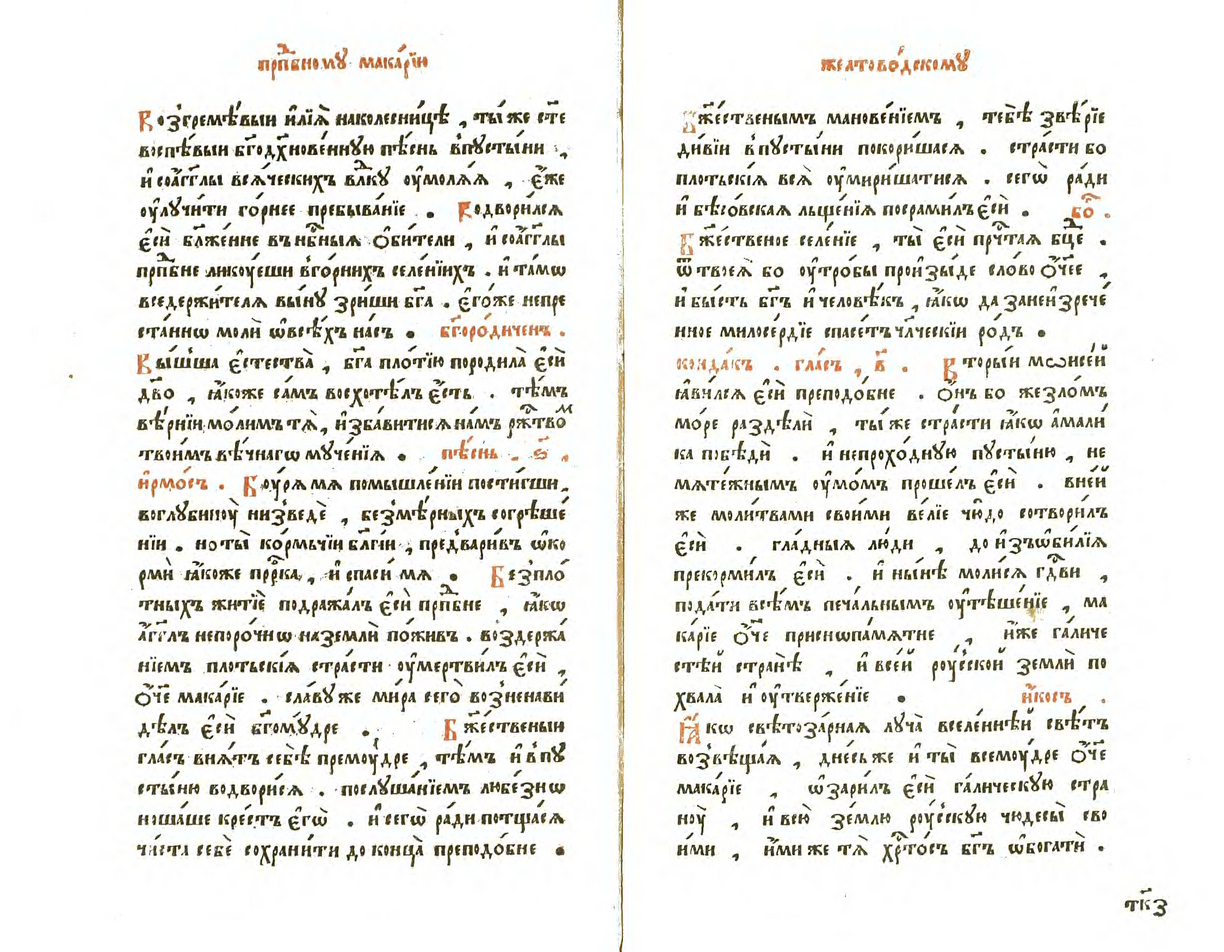 прпⷣбномꙋ макарїю
Возгреме́выи и҆лїѧ̀ наколесни́цѣ , ты́ же сте
воспѣ́выи бг҃одхнове́ннꙋю пѣ́снь впꙋсты́ни ,
и҆ соа҆́гг҃лы всѧ́ческихъ влⷣкꙋ оу҆молѧ́ѧ , є҆́же
оу҆лꙋчи́ти го́рнее пребыва́нїе . Водвори́лсѧ
є҆сѝ бл҃же́нне внб҃ныѧ ѻ҆би́тели , и҆ соа҆́гг҃лы
прпⷣбне ликꙋ́еши вго́рнихъ селе́нїихъ . и҆ та́мѡ
вседержи́телѧ вы́нꙋ зри́ши бг҃а . є҆го́же непре
ста́ннѡ молѝ ѡ҆всѣ́хъ на́съ . бг҃оро́диченъ .
Вы́шша є҆стества̀ , бг҃а пло́тїю породила̀ є҆сѝ
дв҃о , ꙗ҆́коже са́мъ восхотѣ́лъ є҆́сть . тѣ́мъ
вѣ́рнїи мо́лимъ тѧ̀ , и҆зба́витисѧ на́мъ ржⷭ҇твоⷨ
твои́мъ вѣ́чнагѡ мꙋче́нїѧ . пѣ́снь . ѕ҃ .
і҆рмо́съ . Бꙋ́рѧ мѧ̀ помышле́нїи пости́гши ,
воглꙋбинꙋ̀ низведѐ , безмѣ́рныхъ согрѣше́
нїи . но ты̀ ко́рмьчїи бл҃гі́и , предвари́въ ѡ҆ко
рмѝ ꙗ҆́коже прⷪ҇ро́ка , и҆ спасѝ мѧ . Безпло́
тныхъ житїѐ подража́лъ є҆сѝ прпⷣбне , ꙗ҆́кѡ
а҆́гг҃лъ непоро́чнѡ наземлѝ пожи́въ . воздержа́
нїемъ плотьскі́ѧ стра́сти оу҆мертви́лъ є҆сѝ ,
ѻ҆́ч҃е мака́рїе . сла́вꙋ же ми́ра сегѡ̀ возненави́
дѣлъ є҆сѝ бг҃омꙋ́дре . Бж҃е́ственыи
гла́съ внѧ́тъ себѣ̀ премꙋ́дре , тѣ́мъ и҆ впꙋ
сты́ню водвори́сѧ . послꙋша́нїемъ любе́знѡ
ноша́ше кре́стъ є҆гѡ̀ . и҆ сегѡ̀ ра́ди потща́сѧ
чи́ста себѐ сохрани́ти до конца̀ преподо́бне .
желтово́дскомꙋ
Бж҃е́ственымъ манове́нїемъ , тебѣ̀ ѕвѣ́рїе
ди́вїи впꙋсты́ни покори́шасѧ . стра́сти бо
плотьскі́ѧ всѧ̀ оу҆мири́ша тисѧ . сегѡ̀ ра́ди
и҆ бѣсо́вскаѧ льще́нїѧ посрами́лъ є҆сѝ . боⷢ .
Бж҃е́ственое селе́нїе , ты̀ є҆сѝ прчⷭ҇таѧ бцⷣе .
ѿ твоеѧ̀ бо оу҆тро́бы произы́де сло́во ѻ҆́ч҃ее ,
и҆ бы́сть бг҃ъ и҆ человѣ́къ , ꙗ҆́кѡ да заней зрече́
нное милосе́рдїе спасе́тъ чл҃ческїи ро́дъ .
конда́къ . гла́съ , в҃ . Вторы́и мѡисе́й
ꙗ҆ви́лсѧ є҆сѝ преподо́бне . ѻ҆́нъ бо жезло́мъ
мо́ре раздѣлѝ , ты́ же стра́сти ꙗ҆́кѡ а҆мали́
ка побѣдѝ . и҆ непрохо́днꙋю пꙋсты́ню , не
мѧте́жнымъ оу҆мо́мъ проше́лъ є҆сѝ . вне́й
же моли́твами свои́ми ве́лїе чю́до сотвори́лъ
є҆сѝ . гла́дныѧ лю́ди , до и҆зъѡби́лїѧ
прекорми́лъ є҆сѝ . и҆ ны́нѣ моли́сѧ гдⷭ҇ви ,
пода́ти всѣ́мъ печа́льнымъ оу҆тѣше́нїе , ма
ка́рїе ѻ҆́ч҃е приснѡпа́мѧтне , и҆́же га́личе
стѣ́й странѣ̀ , и҆ все́й рꙋ́сской землѝ по
хвала̀ и҆ оу҆твержде́нїе . и҆́косъ .
Ꙗ҆́кѡ свѣтоза́рнаѧ лꙋча̀ вселе́ннѣй свѣ́тъ
возвѣща́ѧ , дне́сь же и҆ ты̀ всемꙋ́дре ѻ҆́ч҃е
мака́рїе , ѡ҆зари́лъ є҆сѝ га́лическꙋю стра
нꙋ̀ , и҆ всю̀ зе́млю рꙋ́сскꙋю чюдесы̀ сво
и́ми , и҆́ми же тѧ̀ хрⷭ҇то́съ бг҃ъ ѡ҆богатѝ .
тк҃з